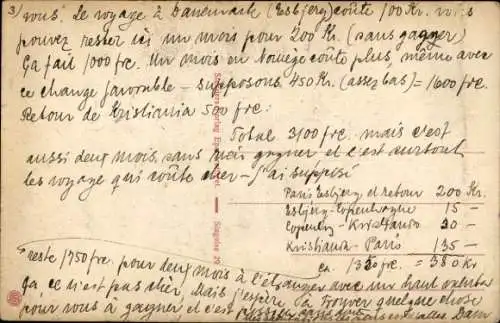 3) vous. Le voyage à Danemark (Esbjerg) coûte 100 Kr.
pouvez rester ici un mois pour 200 Kr. (sans gagner)
Ça fait 1000 frc. Un mois en Norvège coûte plus, même avec
ce change favorable – supposons 450 Kr. (assez bas) = 1600 frc.
Retour de Kristiania 500 frc:
Total 3100 frc. mais c'est
aussi deux mois, sans rien gagner et c'est surtout
les voyage qui coûte cher – J'ai supposé
Paris Esbjerg et retour 200 Kr.
Esbjerg-Copenhague 15 –
Copenh – Kristiania 30 –
Kristiania – Paris 135 –
ca. 1350 frc. = 380 Kr
reste 1750 frc. pour deux mois à l'étranger avec un haut valuta
Ça ce n'est pas cher. Mais j'espère trouver quelque chose
pour vous à gagner et c'est